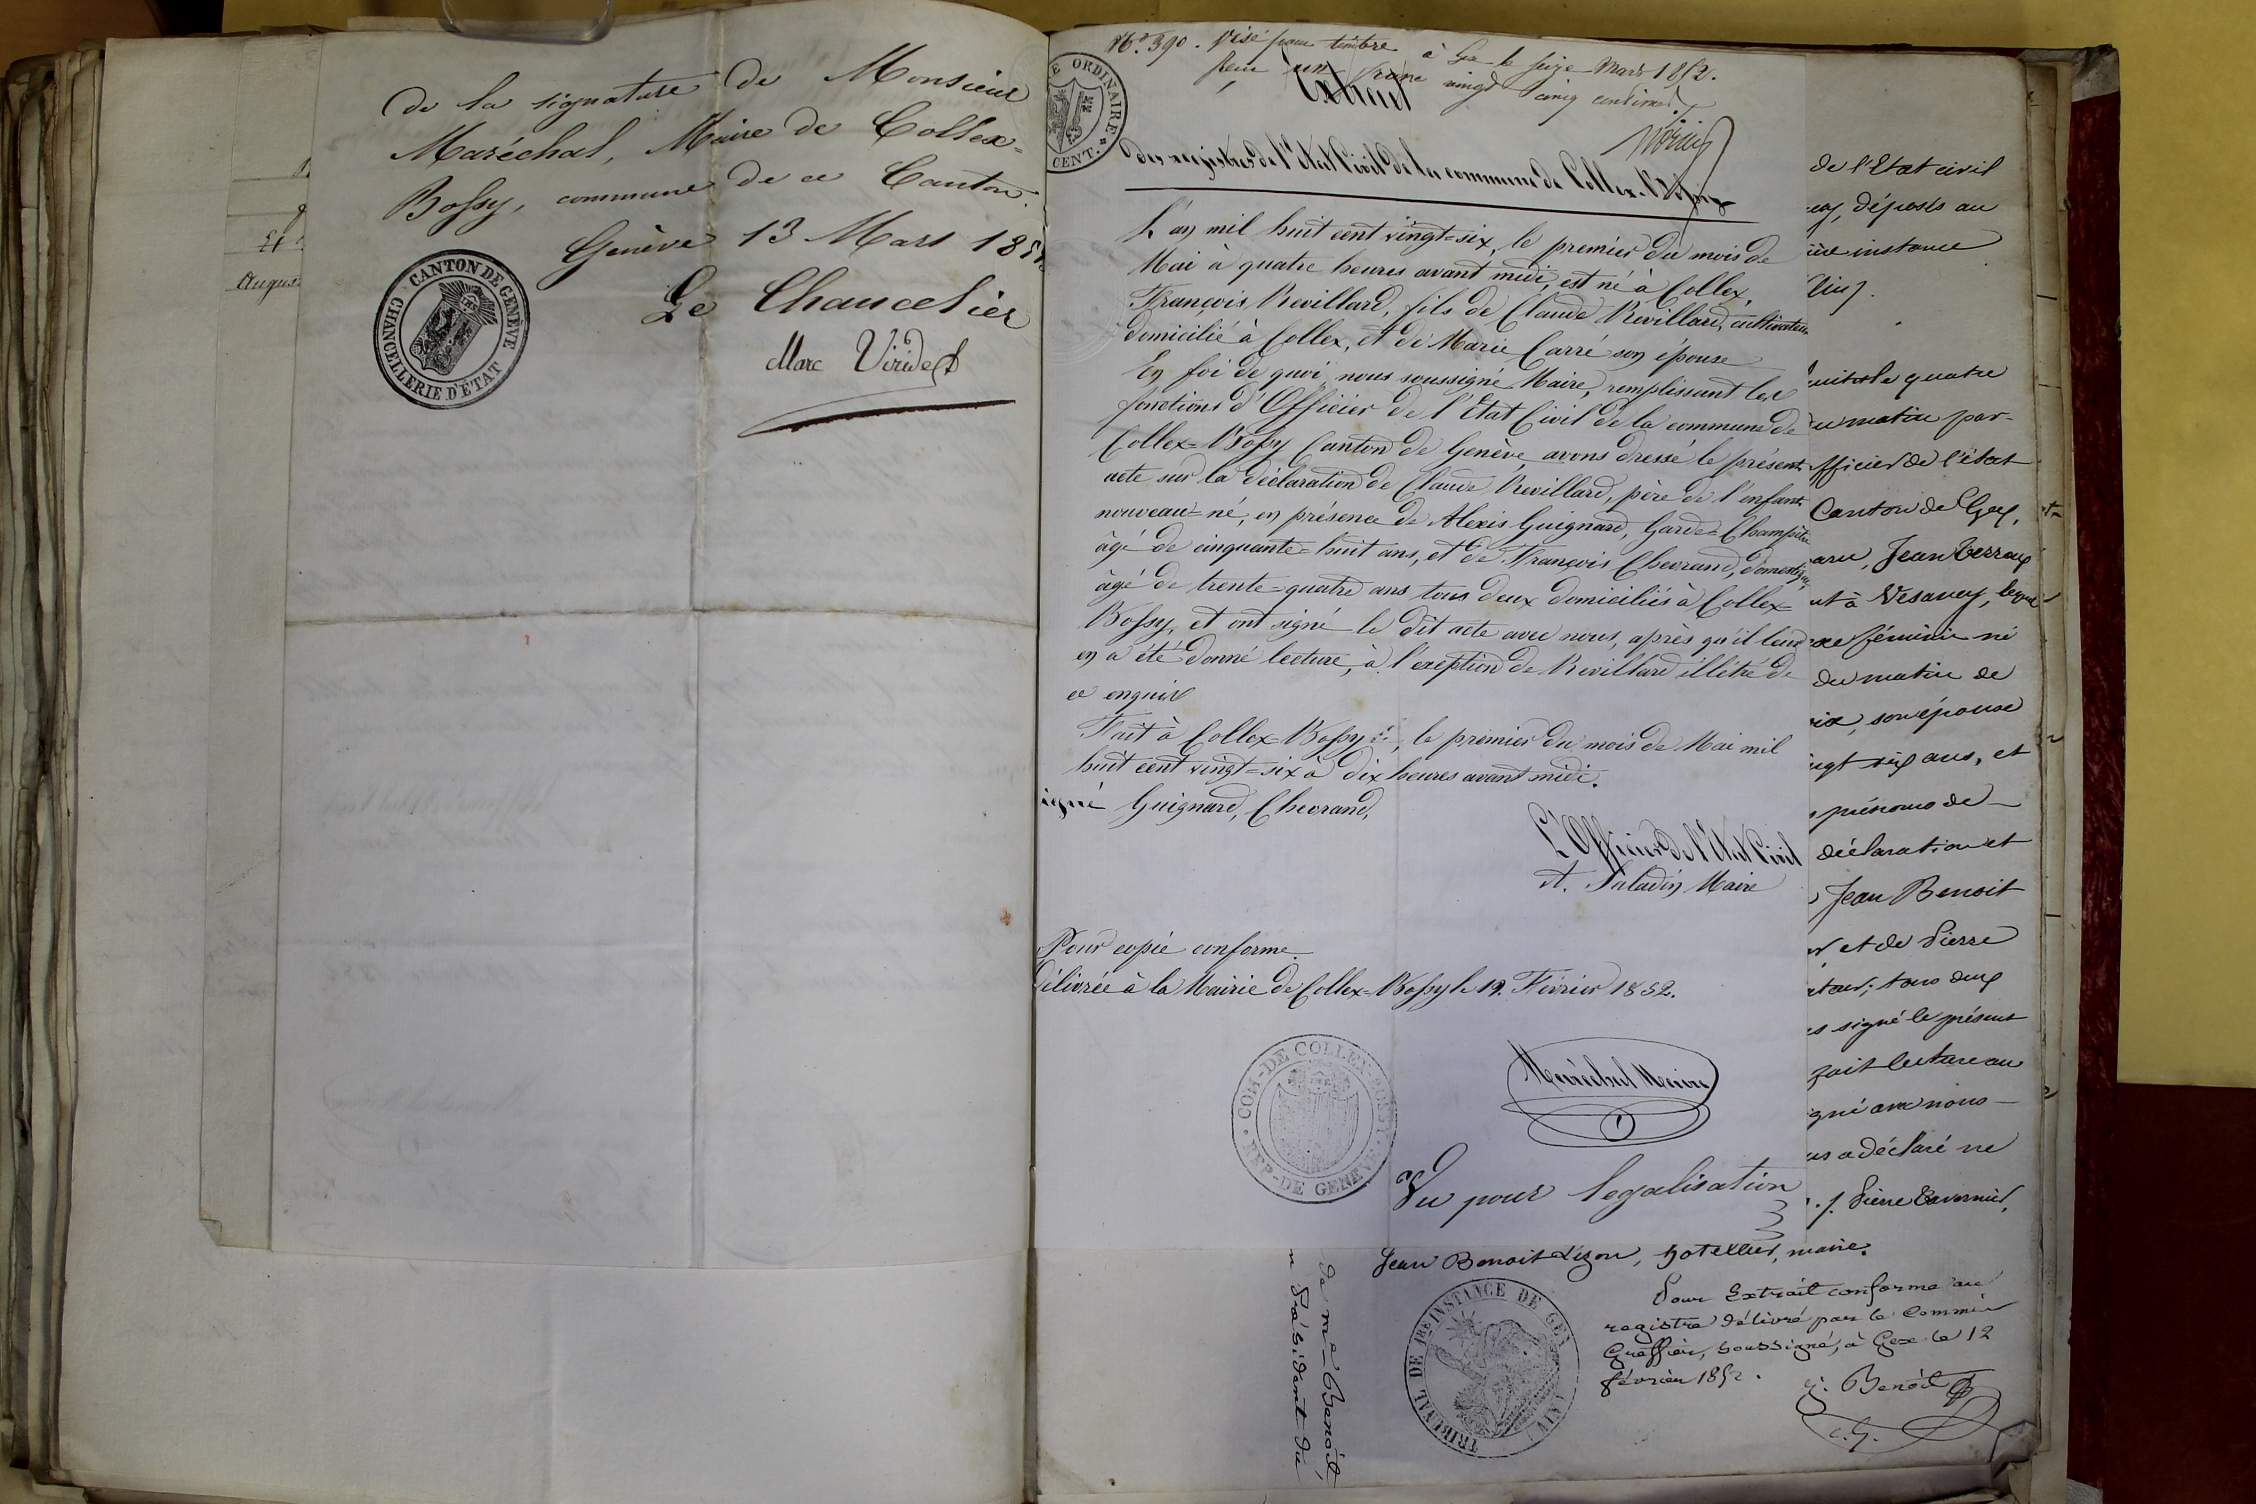 de la signature de Monsieur
Maréchal, Maire de Collex-
Bossy, commune de ce Canton.
Genève 13 Mars 1852
Le Chancelier
Marc Viridet
CHANCELLERIE D'ÉTAT
CANTON DE GENÈVE
Augus
N.º 390. Visé pour timbre à Gex le seize Mars 1852.
Reçu un franc vingt cinq centimes
ORDINAIRE
CENT.
Extrait
des registres de l'Etat Civil de la commune de Collex-Bossy
L'an mil huit cent vingt=six, le premier du mois de
Mai à quatre heures avant midi, est né à Collex,
François Revillard, fils de Claude Revillard, cultivateur
domicilié à Collex, et de Marie Carré son épouse
En foi de quoi nous soussigné Maire, remplissant les
fonctions d'Officier de l'Etat Civil de la commune de
Collex=Bossy Canton de Genève avons dressé le présent
acte sur la déclaration de Claude Revillard, père de l'enfant
nouveau=né, en présence de Alexis Guignard, Garde=Champêtre
âgé de cinquante=huit ans, et de François Chevrand, domestique
âgé de trente=quatre ans tous deux domiciliés à Collex=
Bossy, et ont signé le dit acte avec nous, après qu'il leur
en a été donné lecture, à l'exeption de Revillard illétré de
ce enquis
Fait à Collex=Bossy, le premier du mois de Mai mil
huit cent vingt=six à dix heures avant midi.
igné Guignard, Chevrand,
L'Officier de l'Etat Civil
A. Saladin Maire
Pour copie conforme
Délivrée à la Mairie de Collex=Bossy le 19. Février 1852.
COM-DE COLLEX-BOSSY
REP-DE GENÈVE
Maréchal Maire
Vu pour légalisation
de l'Etat civil
déposés au
instance
quatre
matin par-
fficier de l'état
Canton de Gex,
Jean
à Vesancy, leque
féminin né
du matin de
son épouse
ans, et
prénoms de
déclaration et
Jean Benoit
et de Pierre
tous deux
signé le présent
fait lecture au
gné avec nous
a déclaré ne
Pierre Tavernier,
Jean Benoit Lizon, hotellier, maire.
TRIBUNAL DE 1RE INSTANCE DE GEX
(AIN)
Pour Extrait conforme au
registre délivré par le Commis
Greffier, soussigné, à Gex le 12
février 1852.
J. Benoit
c. G.
de me Benoit
Président du